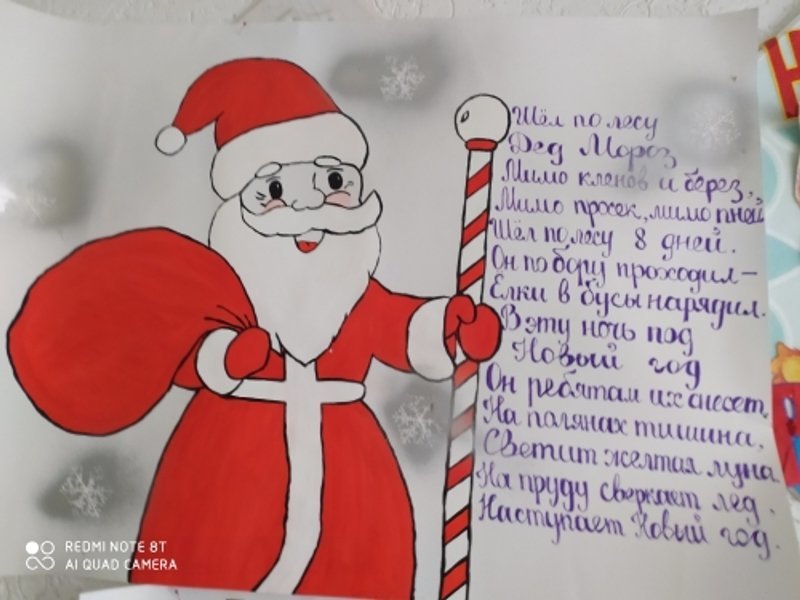 Шёл по лесу
Дед Мороз
Мимо кленов и берез,
Мимо просек, мимо пней,
Шёл по лесу 8 дней.
Он по бору проходил-
Елки в бусы нарядил.
В эту ночь под
Новый год
Он ребятам их снесет.
На полянах тишина,
Светит желтая луна
На пруду сверкает лед.
Наступает Новый год.
Н
REDMI NOTE 8T
AI QUAD CAMERA